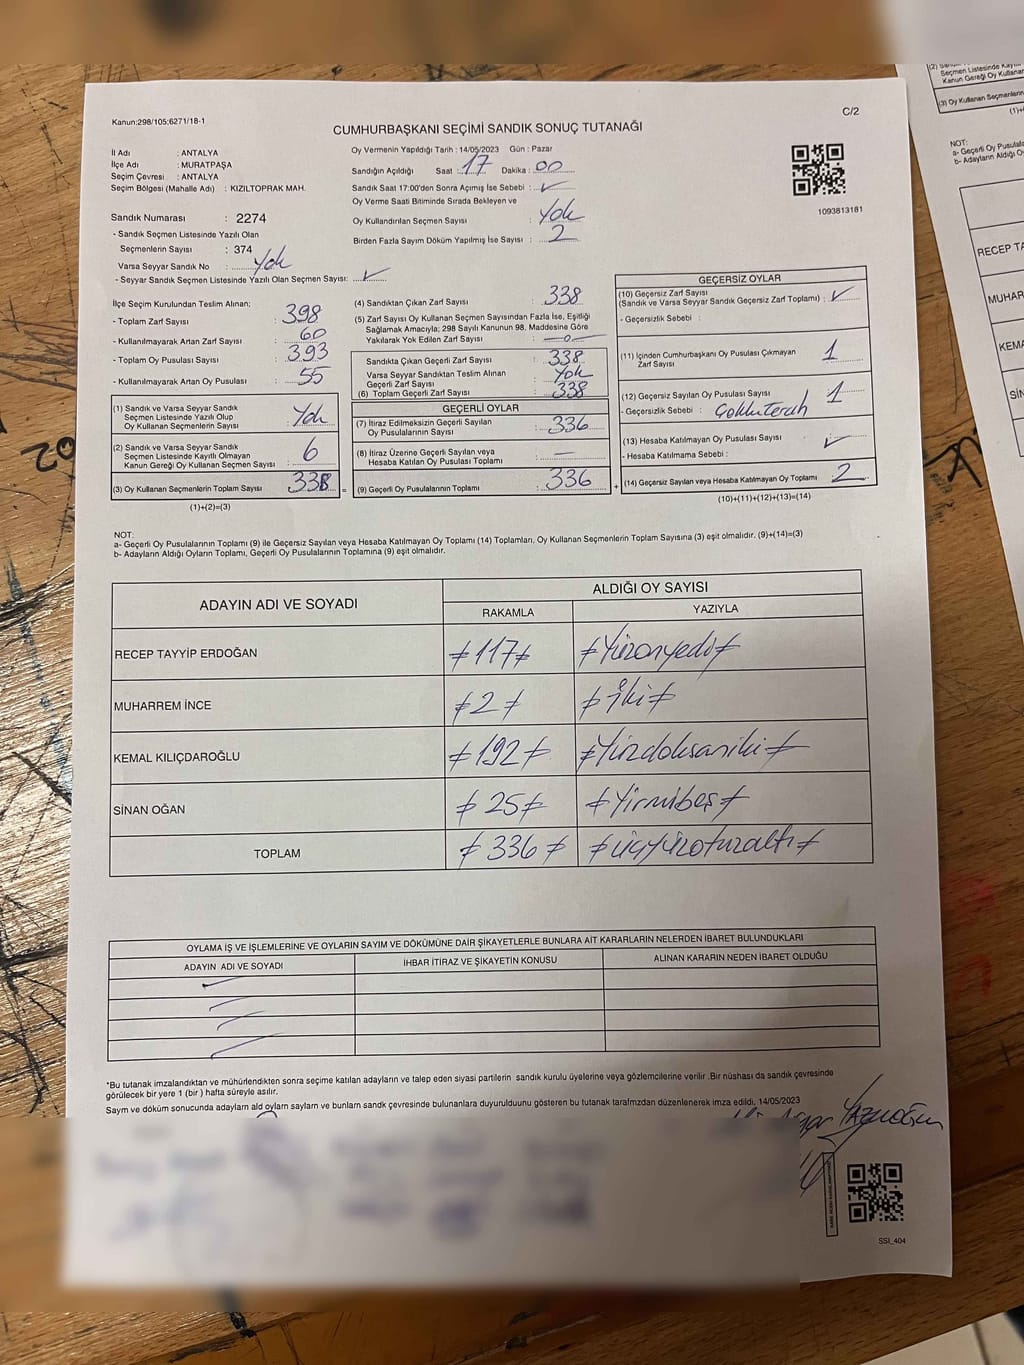 C/2
Kanun:298/105;6271/18-1
CUMHURBAŞKANI SEÇİMİ SANDIK SONUÇ TUTANAĞI
İl Adı : ANTALYA
İlçe Adı : MURATPAŞA
Seçim Çevresi : ANTALYA
Seçim Bölgesi (Mahalle Adı) : KIZILTOPRAK MAH.
Sandık Numarası : 2274
- Sandık Seçmen Listesinde Yazılı Olan
Seçmenlerin Sayısı : 374
Varsa Seyyar Sandık No : Yok
- Seyyar Sandık Seçmen Listesinde Yazılı Olan Seçmen Sayısı:
Oy Vermenin Yapıldığı Tarih : 14/05/2023 Gün : Pazar
Sandığın Açıldığı Saat : 17 Dakika : 00
Sandık Saat 17:00'den Sonra Açımış İse Sebebi :
Oy Verme Saati Bitiminde Sırada Bekleyen ve
Oy Kullandırılan Seçmen Sayısı : Yok
Birden Fazla Sayım Döküm Yapılmış İse Sayısı : 2
1093813181
İlçe Seçim Kurulundan Teslim Alınan;
- Toplam Zarf Sayısı : 398
- Kullanılmayarak Artan Zarf Sayısı : 60
- Toplam Oy Pusulası Sayısı : 393
- Kullanılmayarak Artan Oy Pusulası : 55
(1) Sandık ve Varsa Seyyar Sandık
Seçmen Listesinde Yazılı Olup
Oy Kullanan Seçmenlerin Sayısı : Yok
(2) Sandık ve Varsa Seyyar Sandık
Seçmen Listesinde Kayıtlı Olmayan
Kanun Gereği Oy Kullanan Seçmen Sayısı : 6
(3) Oy Kullanan Seçmenlerin Toplam Sayısı 338
(1)+(2)=(3)
(4) Sandıktan Çıkan Zarf Sayısı : 338
(5) Zarf Sayısı Oy Kullanan Seçmen Sayısından Fazla İse, Eşitliği
Sağlamak Amacıyla; 298 Sayılı Kanunun 98. Maddesine Göre
Yakılarak Yok Edilen Zarf Sayısı : —0—
Sandıkta Çıkan Geçerli Zarf Sayısı : 338
Varsa Seyyar Sandıktan Teslim Alınan
Geçerli Zarf Sayısı : Yok
(6) Toplam Geçerli Zarf Sayısı : 338
GEÇERLİ OYLAR
(7) İtiraz Edilmeksizin Geçerli Sayılan
Oy Pusulalarının Sayısı : 336
(8) İtiraz Üzerine Geçerli Sayılan veya
Hesaba Katılan Oy Pusulası Toplamı : —
(9) Geçerli Oy Pusulalarının Toplamı : 336
GEÇERSİZ OYLAR
(10) Geçersiz Zarf Sayısı
(Sandık ve Varsa Seyyar Sandık Geçersiz Zarf Toplamı) :
- Geçersizlik Sebebi :
(11) İçinden Cumhurbaşkanı Oy Pusulası Çıkmayan
Zarf Sayısı : 1
(12) Geçersiz Sayılan Oy Pusulası Sayısı : 1
- Geçersizlik Sebebi : Çoklu tercih
(13) Hesaba Katılmayan Oy Pusulası Sayısı :
- Hesaba Katılmama Sebebi :
(14) Geçersiz Sayılan veya Hesaba Katılmayan Oy Toplamı : 2
(10)+(11)+(12)+(13)=(14)
NOT:
a- Geçerli Oy Pusulalarının Toplamı (9) ile Geçersiz Sayılan veya Hesaba Katılmayan Oy Toplamı (14) Toplamları, Oy Kullanan Seçmenlerin Toplam Sayısına (3) eşit olmalıdır. (9)+(14)=(3)
b- Adayların Aldığı Oyların Toplamı, Geçerli Oy Pusulalarının Toplamına (9) eşit olmalıdır.
ADAYIN ADI VE SOYADI ALDIĞI OY SAYISI
RAKAMLA YAZIYLA
RECEP TAYYİP ERDOĞAN ≠117≠ ≠Yüzonyedi≠
MUHARREM İNCE ≠2≠ ≠İki≠
KEMAL KILIÇDAROĞLU ≠192≠ ≠Yüzdoksaniki≠
SİNAN OĞAN ≠25≠ ≠Yirmibeş≠
TOPLAM ≠336≠ ≠üçyüzotuzaltı≠
OYLAMA İŞ VE İŞLEMLERİNE VE OYLARIN SAYIM VE DÖKÜMÜNE DAİR ŞİKAYETLERLE BUNLARA AİT KARARLARIN NELERDEN İBARET BULUNDUKLARI
ADAYIN ADI VE SOYADI İHBAR İTİRAZ VE ŞİKAYETİN KONUSU ALINAN KARARIN NEDEN İBARET OLDUĞU
*Bu tutanak imzalandıktan ve mühürlendikten sonra seçime katılan adayların ve talep eden siyasi partilerin sandık kurulu üyelerine veya gözlemcilerine verilir .Bir nüshası da sandık çevresinde
görülecek bir yere 1 (bir ) hafta süreyle asılır.
Sayım ve döküm sonucunda adayların ald oyların sayların ve bunların sandk çevresinde bulunanlara duyurulduunu gösteren bu tutanak tarafmzdan düzenlenerek imza edildi. 14/05/2023
SSI_404